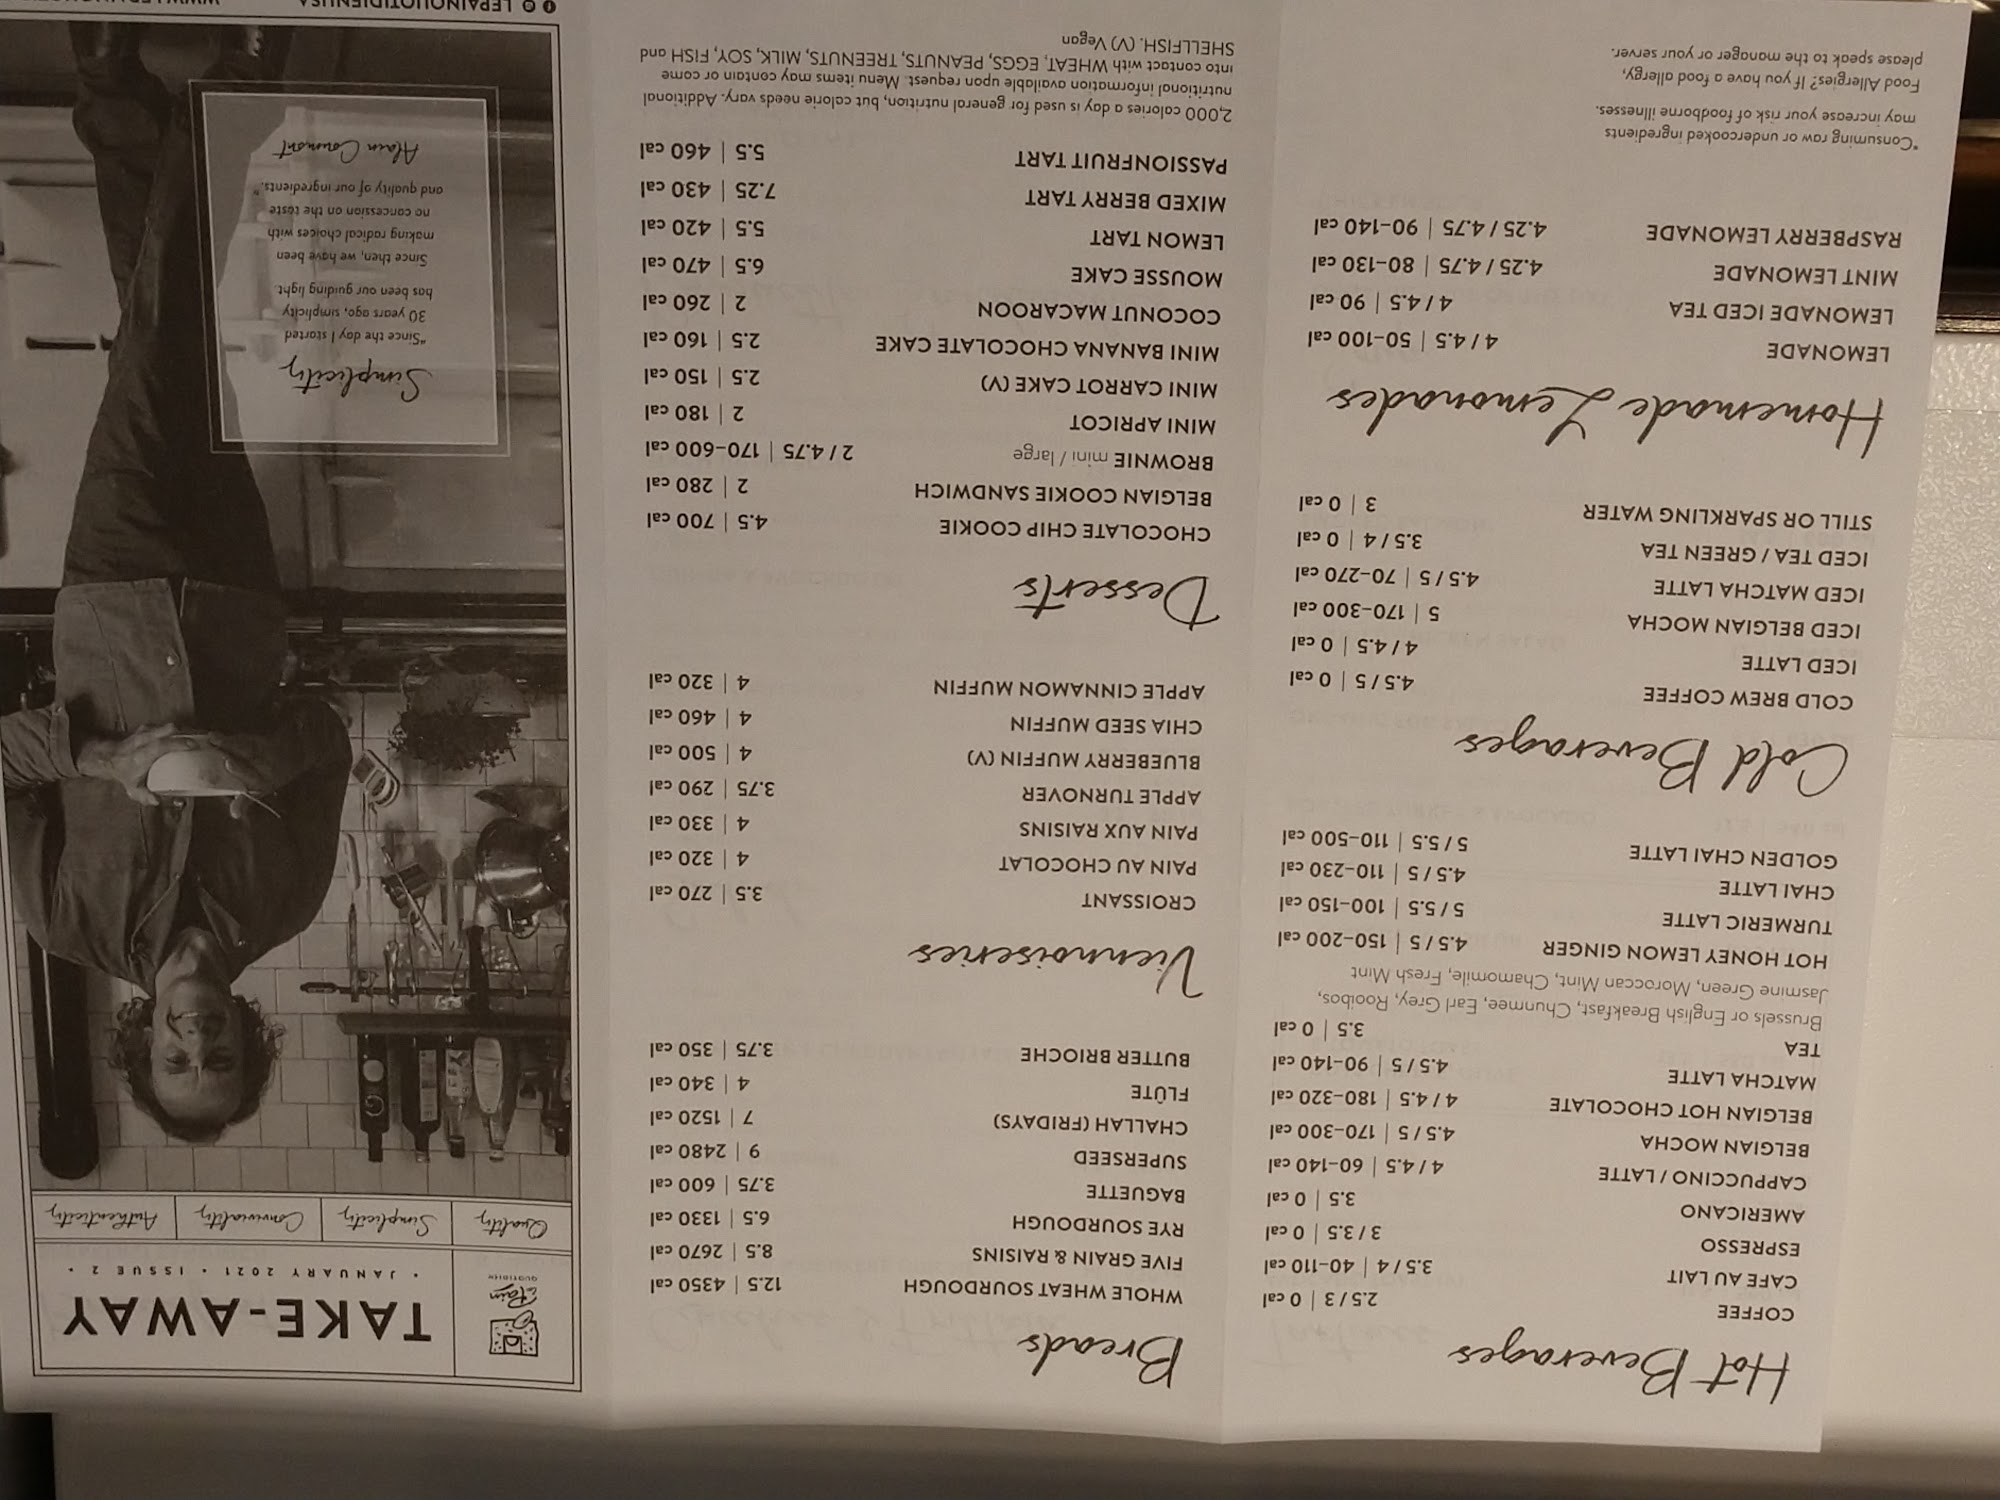 Hot Beverages
COFFEE 2.5 / 3 | 0 cal
CAFE AU LAIT 3.5 / 4 | 40-110 cal
ESPRESSO 3 / 3.5 | 0 cal
AMERICANO 3.5 | 0 cal
CAPPUCCINO / LATTE 4 / 4.5 | 60-140 cal
BELGIAN MOCHA 4.5 / 5 | 170-300 cal
BELGIAN HOT CHOCOLATE 4 / 4.5 | 180-320 cal
MATCHA LATTE 4.5 / 5 | 90-140 cal
TEA 3.5 | 0 cal
Brussels or English Breakfast, Chunmee, Earl Grey, Rooibos,
Jasmine Green, Moroccan Mint, Chamomile, Fresh Mint
HOT HONEY LEMON GINGER 4.5 / 5 | 150-200 cal
TURMERIC LATTE 5 / 5.5 | 100-150 cal
CHAI LATTE 4.5 / 5 | 110-230 cal
GOLDEN CHAI LATTE 5 / 5.5 | 110-500 cal
Cold Beverages
COLD BREW COFFEE 4.5 / 5 | 0 cal
ICED LATTE 4 / 4.5 | 0 cal
ICED BELGIAN MOCHA 5 | 170-300 cal
ICED MATCHA LATTE 4.5 / 5 | 70-270 cal
ICED TEA / GREEN TEA 3.5 / 4 | 0 cal
STILL OR SPARKLING WATER 3 | 0 cal
Homemade Lemonades
LEMONADE 4 / 4.5 | 50-100 cal
LEMONADE ICED TEA 4 / 4.5 | 90 cal
MINT LEMONADE 4.25 / 4.75 | 80-130 cal
RASPBERRY LEMONADE 4.25 / 4.75 | 90-140 cal
*Consuming raw or undercooked ingredients
may increase your risk of foodborne illnesses.
Food Allergies? If you have a food allergy,
please speak to the manager or your server.
Breads
WHOLE WHEAT SOURDOUGH 12.5 | 4350 cal
FIVE GRAIN & RAISINS 8.5 | 2670 cal
RYE SOURDOUGH 6.5 | 1330 cal
BAGUETTE 3.75 | 600 cal
SUPERSEED 9 | 2480 cal
CHALLAH (FRIDAYS) 7 | 1520 cal
FLÛTE 4 | 340 cal
BUTTER BRIOCHE 3.75 | 350 cal
Viennoiseries
CROISSANT 3.5 | 270 cal
PAIN AU CHOCOLAT 4 | 320 cal
PAIN AUX RAISINS 4 | 330 cal
APPLE TURNOVER 3.75 | 290 cal
BLUEBERRY MUFFIN (V) 4 | 500 cal
CHIA SEED MUFFIN 4 | 460 cal
APPLE CINNAMON MUFFIN 4 | 320 cal
Desserts
CHOCOLATE CHIP COOKIE 4.5 | 700 cal
BELGIAN COOKIE SANDWICH 2 | 280 cal
BROWNIE mini / large 2 / 4.75 | 170-600 cal
MINI APRICOT 2 | 180 cal
MINI CARROT CAKE (V) 2.5 | 150 cal
MINI BANANA CHOCOLATE CAKE 2.5 | 160 cal
COCONUT MACAROON 2 | 260 cal
MOUSSE CAKE 6.5 | 470 cal
LEMON TART 5.5 | 420 cal
MIXED BERRY TART 7.25 | 430 cal
PASSIONFRUIT TART 5.5 | 460 cal
2,000 calories a day is used for general nutrition, but calorie needs vary. Additional
nutritional information available upon request. Menu items may contain or come
into contact with WHEAT, EGGS, PEANUTS, TREENUTS, MILK, SOY, FISH and
SHELLFISH. (V) Vegan
Pain
QUOTIDIEN
TAKE-AWAY
• JANUARY 2021 • ISSUE 2 •
Quality Simplicity Conviviality Authenticity
Simplicity
"Since the day I started
30 years ago, simplicity
has been our guiding light.
Since then, we have been
making radical choices with
no concession on the taste
and quality of our ingredients."
Alain Coumont
LEPAINQUOTIDIENUSA